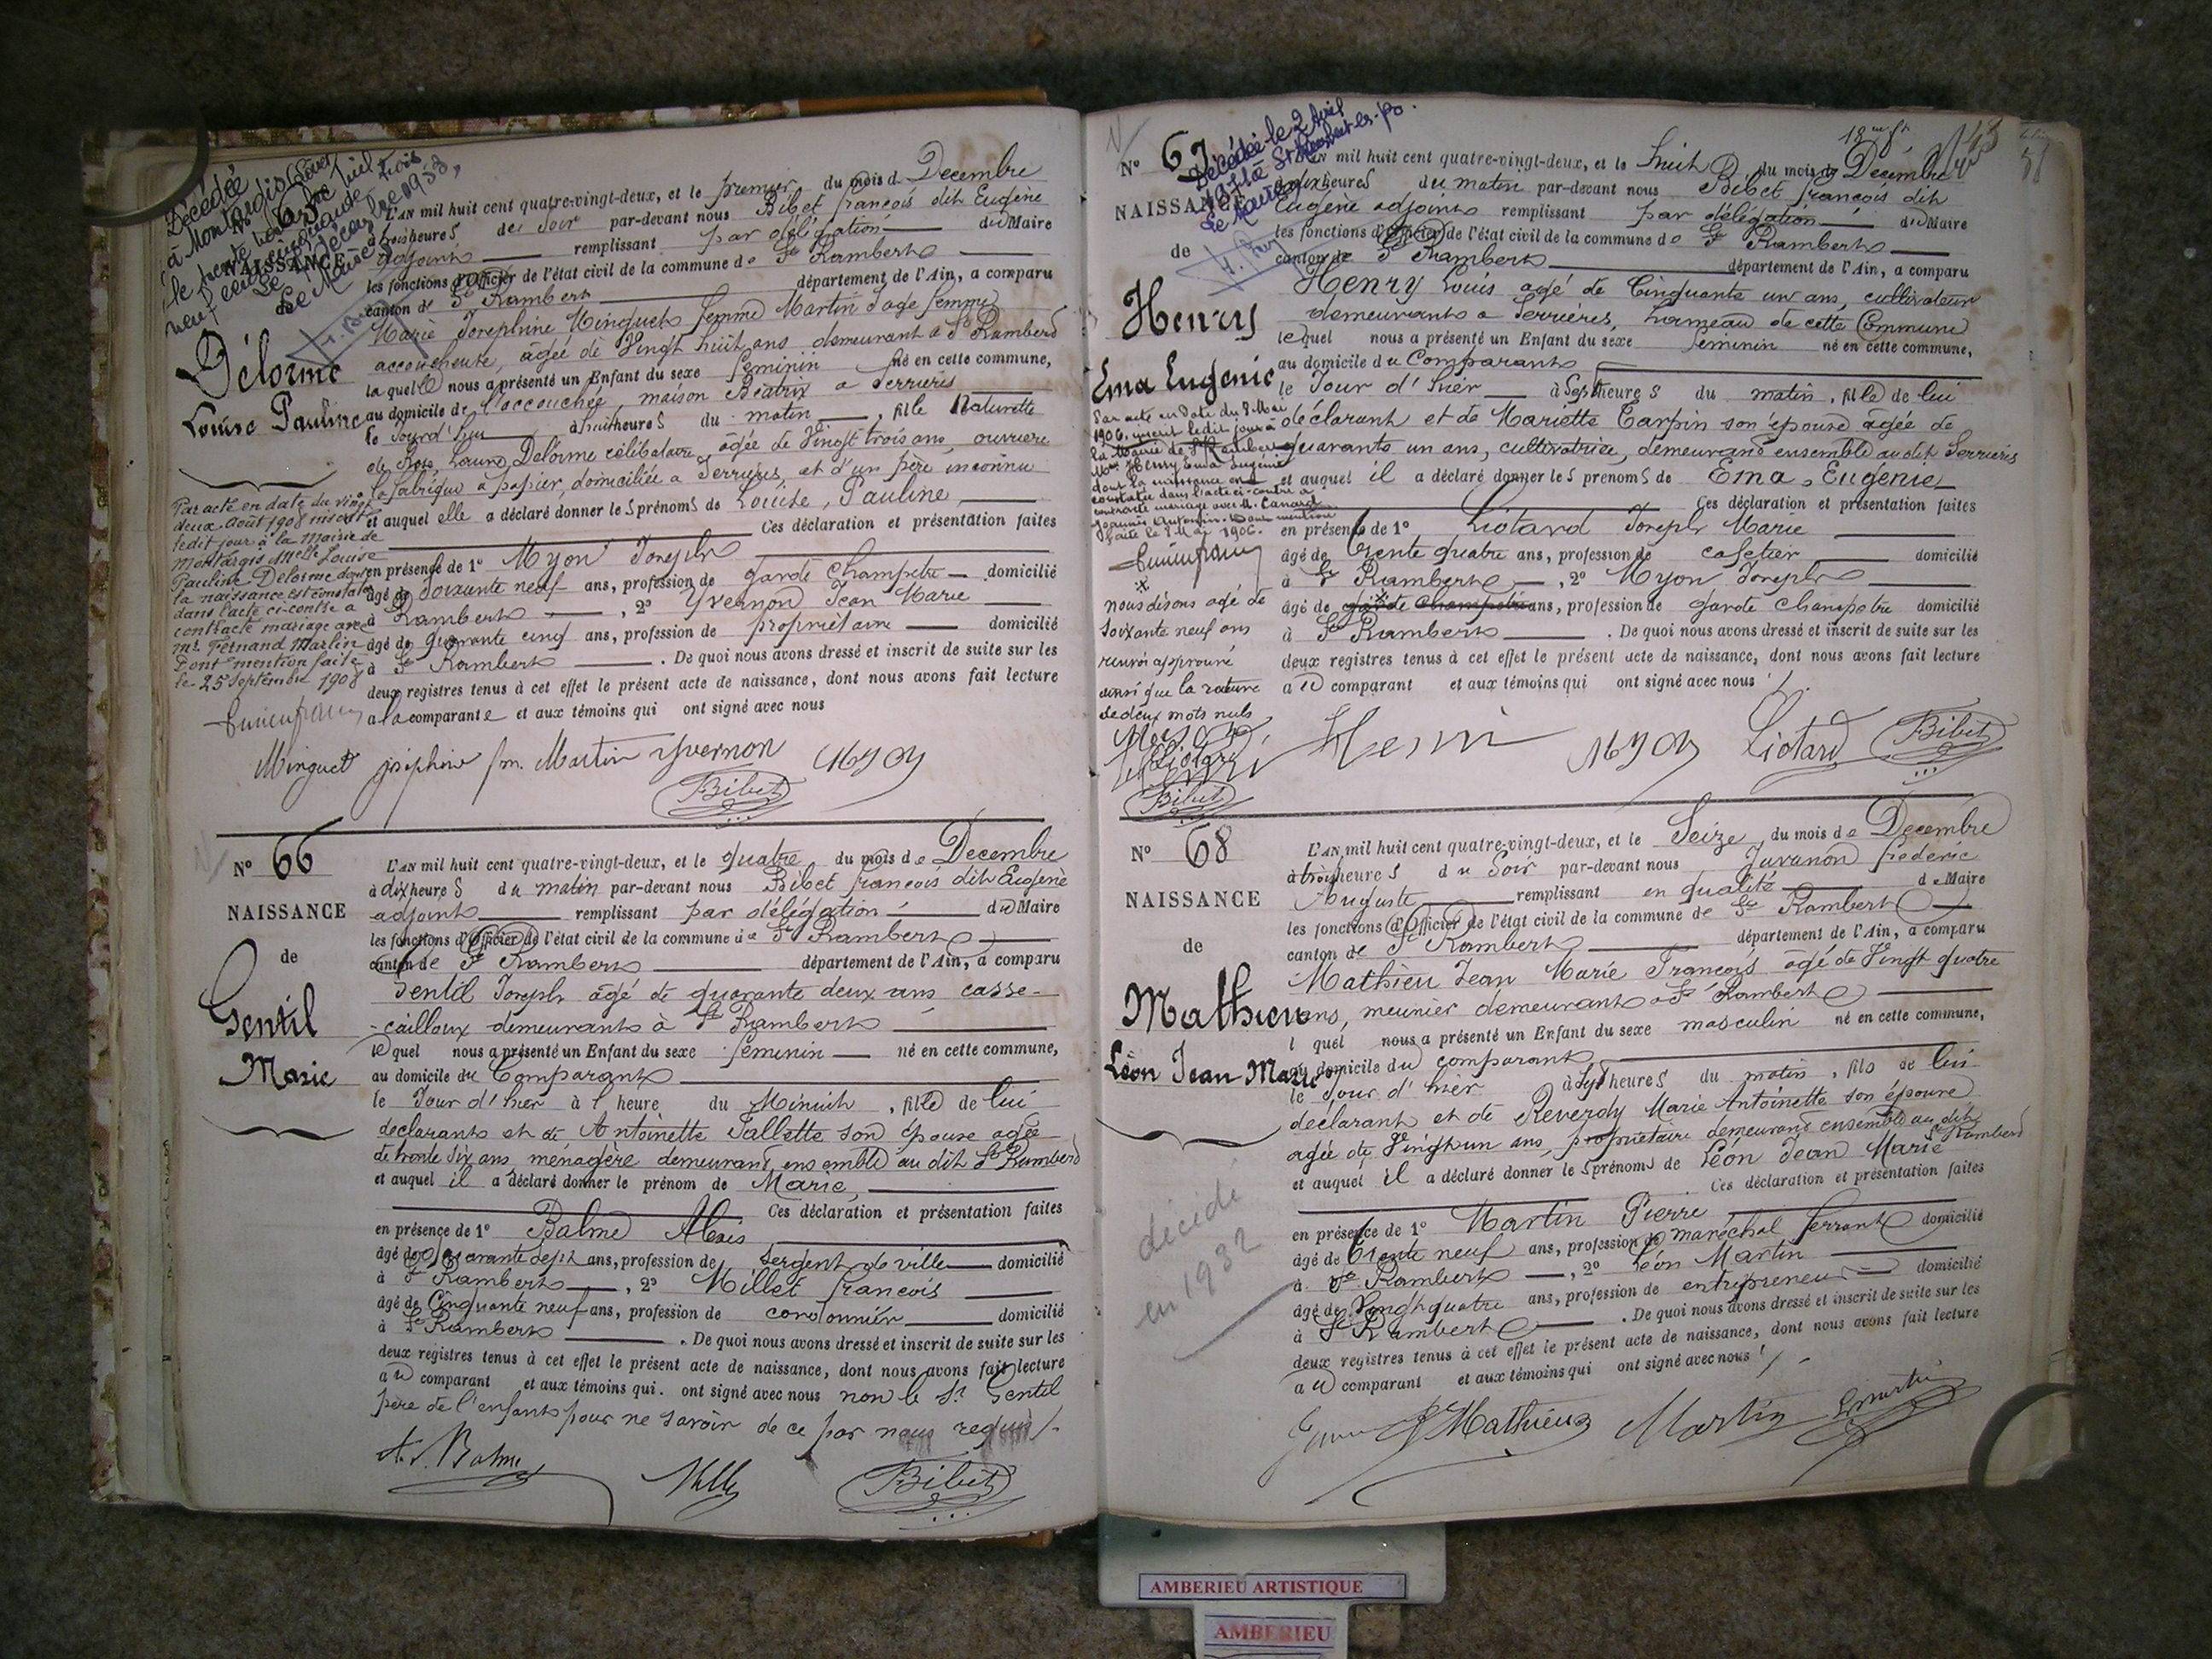 Décédée
à Montargis (Loiret)
L'AN mil huit cent quatre-vingt-deux, et le premier du mois d Decembre
à trois heures du soir par-devant nous Bibet francois dit Eugène
adjoint remplissant par délégation du Maire
les fonctions d'Officier de l'état civil de la commune de St Rambert
canton de St Rambert département de l'Ain, a comparu
Marie Josephine Minguet femme Martin sage femme
accoucheuse, âgée de Vingt huit ans demeurant a St Rambert
laquelle nous a présenté un Enfant du sexe feminin né en cette commune,
au domicile de l'accouchée, maison Béatrix a Serrières
le Jourd'hui à huit heures du matin, fille Naturelle
de Delorme célibataire âgée de Vingt trois ans, ouvriere
fabrique a papier, domiciliée a Serrières, et d'un père inconnu
et auquel elle a déclaré donner les prénoms de Louise, Pauline,
Ces déclaration et présentation faites
en présence de 1° Myon Joseph
âgé de soixante neuf ans, profession de garde champetre domicilié
à Rambert, 2° Yvernon Jean Marie
âgé de quarante cinq ans, profession de propriétaire domicilié
à St Rambert. De quoi nous avons dressé et inscrit de suite sur les
deux registres tenus à cet effet le présent acte de naissance, dont nous avons fait lecture
a la comparante et aux témoins qui ont signé avec nous
NAISSANCE
de
Délorme
Louise Pauline
Par acte en date du vingt
deux Août 1908 inscrit
ledit jour à la Mairie de
Montargis Melle Louise
Pauline Delorme dont
la naissance est constatée
dans l'acte ci-contre a
contracté mariage avec
Mr. Fernand Martin
Dont mention faite
le 25 Septembre 1908
Minguet josiphine fm. Martin Yvernon Myon
Bibet
N° 66
NAISSANCE
de
Gentil
Marie
L'AN mil huit cent quatre-vingt-deux, et le quatre du mois de Decembre
à dix heures du matin par-devant nous Bibet francois dit Eugène
adjoint remplissant par délégation du Maire
les fonctions d'Officier de l'état civil de la commune de St Rambert
canton de St Rambert département de l'Ain, a comparu
Gentil Joseph âgé de quarante deux ans casse-
-cailloux demeurant à St Rambert
lequel nous a présenté un Enfant du sexe feminin né en cette commune,
au domicile du Comparant
le Jour d'hier à 1 heure du Minuit, fille de lui
declarant et de Antoinette Tallette son épouse agée
de trente six ans ménagère demeurant ensemble au dit St Rambert
et auquel il a déclaré donner le prénom de Marie,
Ces déclaration et présentation faites
en présence de 1° Balme Alexis
âgé de quarante sept ans, profession de Sergent de ville domicilié
à St Rambert, 2° Millet francois
âgé de Cinquante neuf ans, profession de cordonnier domicilié
à St Rambert. De quoi nous avons dressé et inscrit de suite sur les
deux registres tenus à cet effet le présent acte de naissance, dont nous avons fait lecture
au comparant et aux témoins qui ont signé avec nous non le Sr Gentil
père de l'enfant pour ne savoir de ce par nous requis
A. Balme
Bibet
N° 67
NAISSANCE
de
Henry
Ema Eugenie
Décédée le 2 Avril
Le Maire
L'AN mil huit cent quatre-vingt-deux, et le huit du mois de Décembre
heures du matin par-devant nous Bibet francois dit
Eugène adjoint remplissant par délégation du Maire
les fonctions d'Officier de l'état civil de la commune de St Rambert
canton de St Rambert département de l'Ain, a comparu
Henry Louis agé de Cinquante un ans, cultivateur
demeurant a Serrières, hameau de cette Commune
lequel nous a présenté un Enfant du sexe feminin né en cette commune,
au domicile du Comparant
le Jour d'hier à Sept heures du matin, fille de lui
déclarant et de Mariette Carpin son épouse agée de
quarante un ans, cultivatrice, demeurand ensemble au dit Serrieres
et auquel il a déclaré donner les prenoms de Ema, Eugenie
Ces déclaration et présentation faites
en présence de 1° Liotard Joseph Marie
âgé de trente quatre ans, profession de cafetier domicilié
à St Rambert, 2° Myon Joseph
âgé de garde champêtre ans, profession de garde champetre domicilié
à St Rambert. De quoi nous avons dressé et inscrit de suite sur les
deux registres tenus à cet effet le présent acte de naissance, dont nous avons fait lecture
au comparant et aux témoins qui ont signé avec nous
Par acte en date du 8 Mai
1906, inscrit ledit jour à
la Mairie de St Rambert
Henry Ema Eugénie
dont la naissance est
constatée dans l'acte ci-contre a
contracté mariage avec M. Canard
Joannès Antonin. Dont mention
faite le 8 Mai 1906.
x
nous disons agé de
soixante neuf ans
renvoi approuvé
ainsi que la rature
de deux mots nuls
Liotard
Bibet
Henri Myon Liotard Bibet
N° 68
NAISSANCE
de
Mathieu
Léon Jean Marie
décédé
en 1932
L'AN mil huit cent quatre-vingt-deux, et le Seize du mois de Decembre
à trois heures du Soir par-devant nous Juvanon frederic
Auguste remplissant en qualité de Maire
les fonctions d'Officier de l'état civil de la commune de St Rambert
canton de St Rambert département de l'Ain, a comparu
Mathieu Jean Marie Francois agé de Vingt quatre
ans, meunier demeurant a St Rambert
l quel nous a présenté un Enfant du sexe masculin né en cette commune,
au domicile du comparant
le Jour d'hier à sept heures du matin, fils de lui
declarant et de Reverdy Marie Antoinette son épouse
agée de Vingt un ans, propriétaire demeurant ensemble au dit St Rambert
et auquel il a déclaré donner les prénoms de Léon Jean Marie
Ces déclaration et présentation faites
en présence de 1° Martin Pierre
âgé de trente neuf ans, profession de maréchal ferrant domicilié
à St Rambert, 2° Léon Martin
âgé de Vingt quatre ans, profession de entrepreneur domicilié
à St Rambert. De quoi nous avons dressé et inscrit de suite sur les
deux registres tenus à cet effet le présent acte de naissance, dont nous avons fait lecture
au comparant et aux témoins qui ont signé avec nous
Mathieu Martin L Martin
AMBERIEU ARTISTIQUE
AMBERIEU